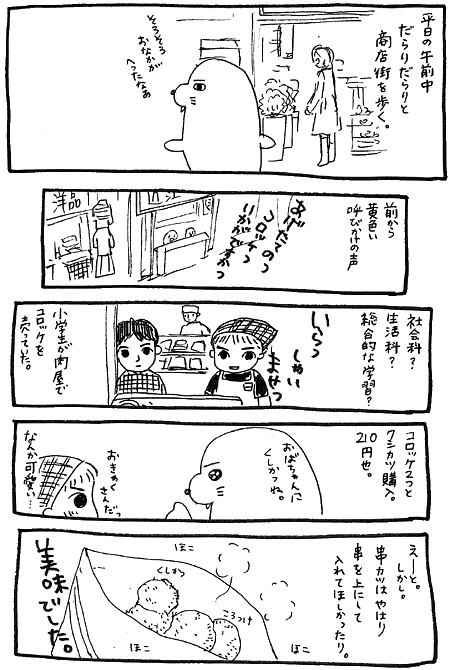 平日の午前中
だらりだらりと
商店街を歩く。
そろそろ
おなかが
へったなぁ
前から
黄色い
呼びかけの声
あげたての
コロッケっ
いかがですかっ
洋品
社会科？
生活科？
総合的な学習？
いらっ
しゃい
ませっ
小学生が肉屋で
コロッケを
売っていた。
コロッケ2つと
クシカツ購入。
210円也。
おばちゃんに
くしかつね。
おきゃく
さんだっ
なんか可愛い…
えーと。
しかし。
串カツはやはり
串を上にして
入れてほしかったり。
ほこ
くしかつ
ころっけ
ほこ
ほこ
美味でした。